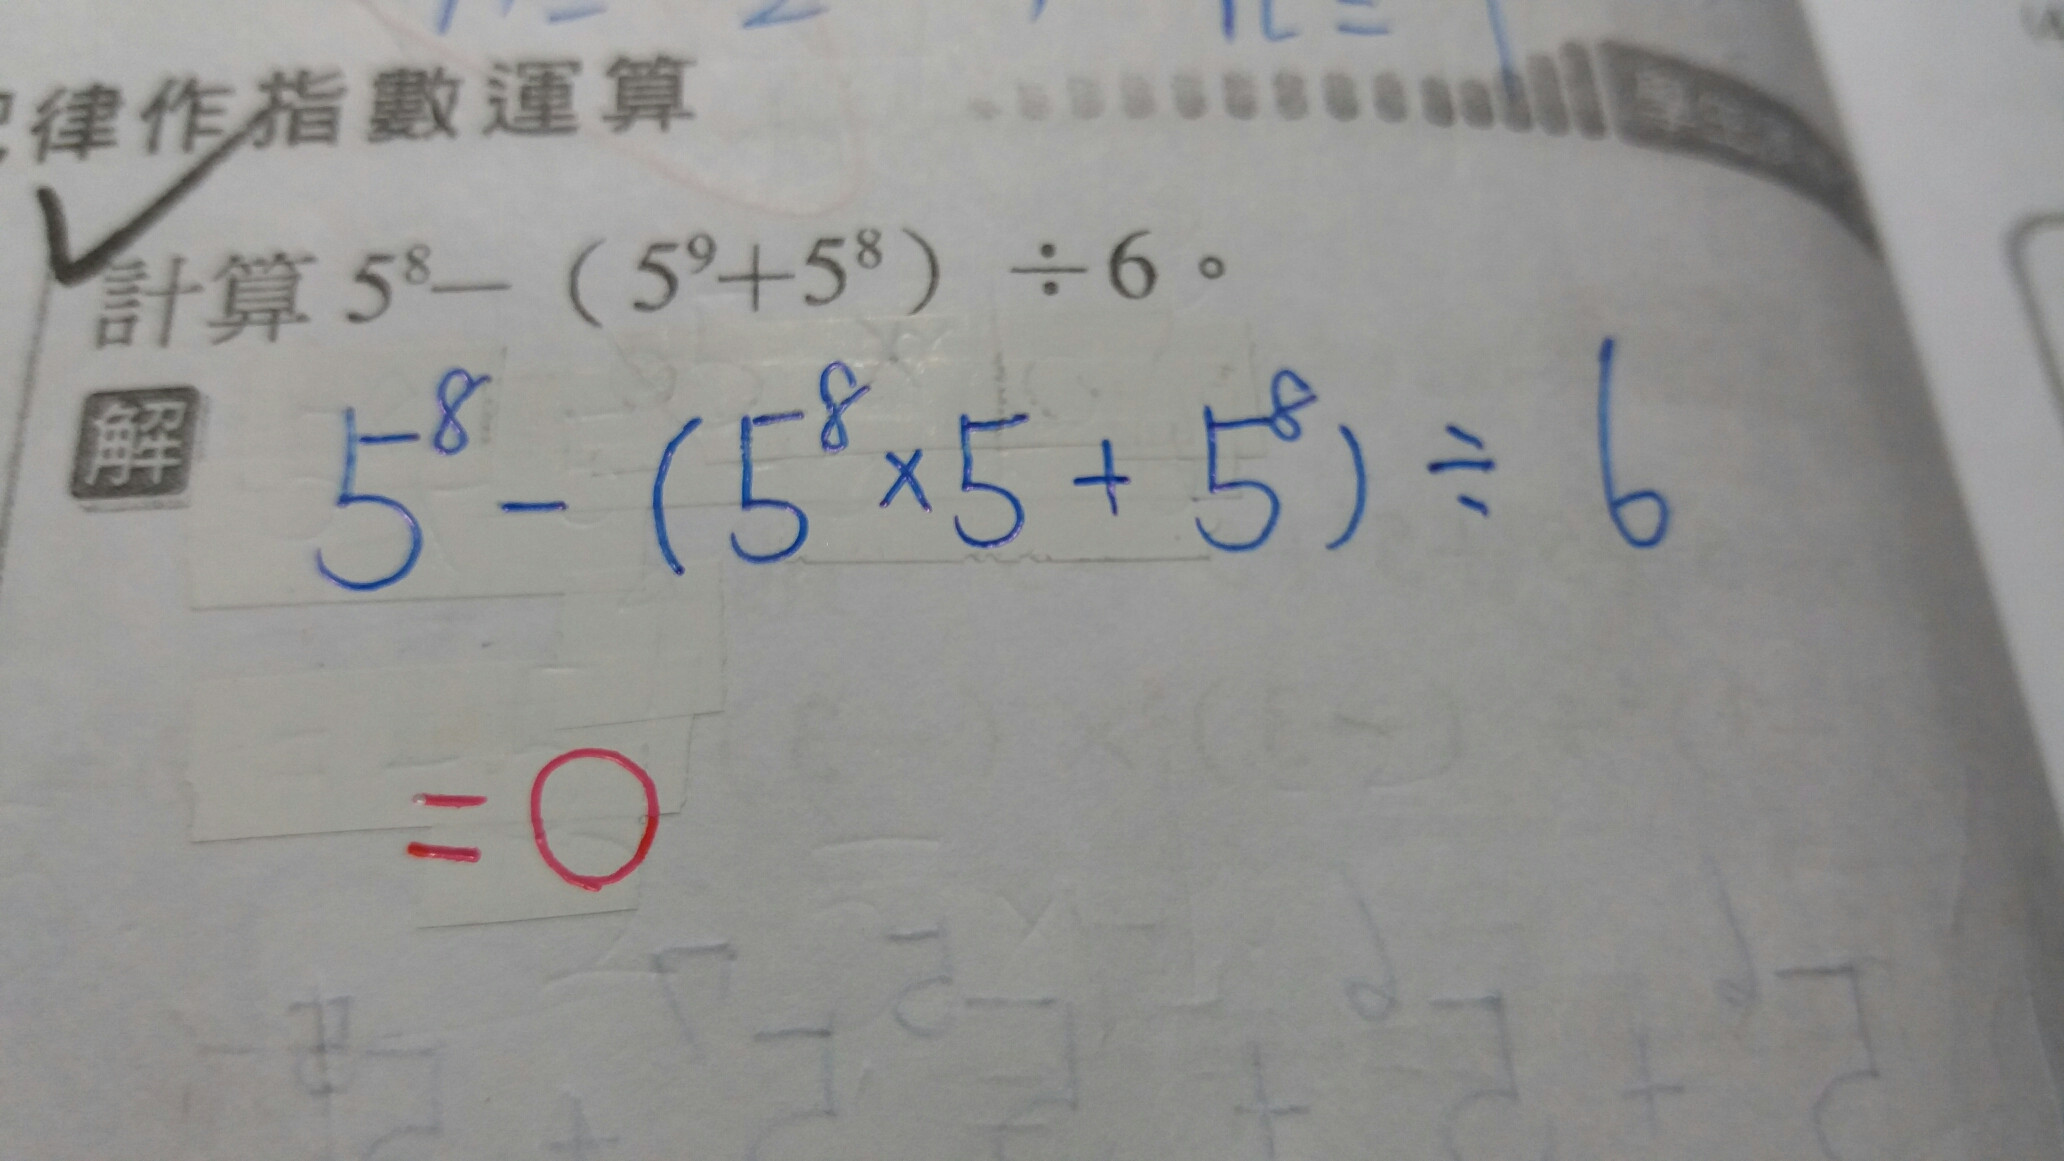 律作指數運算
計算 5⁸—（5⁹+5⁸）÷6。
解 5⁸-(5⁸×5+5⁸)÷6
=0